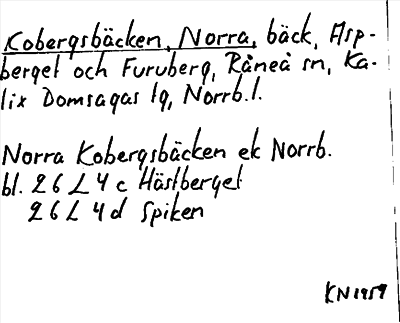 Kobergsbäcken, Norra, bäck, Asp-
berget och Furuberg, Råneå sn, Ka-
lix Domsagas lg, Norrb.l.
Norra Kobergsbäcken ek Norrb.
bl. 26 L 4 c Hästberget
26 L 4 d Spiken
KN 1959